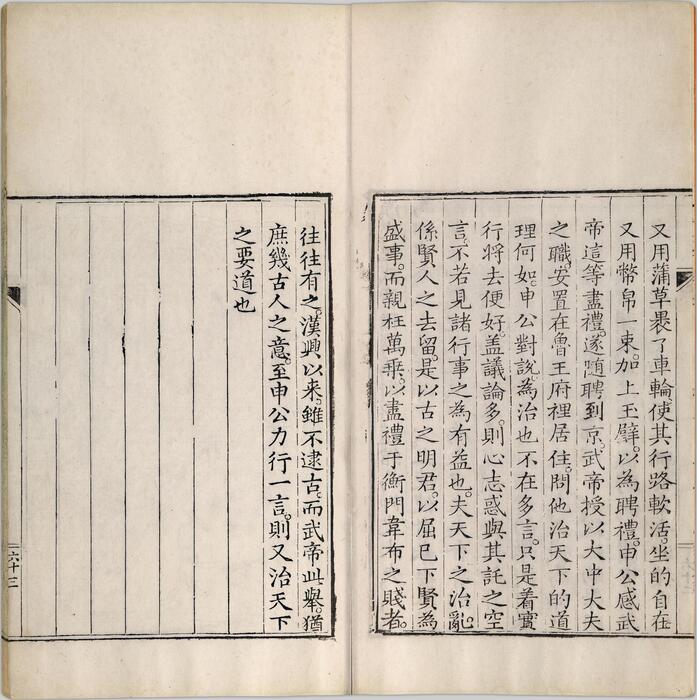 又用蒲草裹了車輪使其行路軟活。坐的自在
又用幣帛一束。加上玉璧。以為聘禮。申公感武
帝這等盡禮。遂随聘到京。武帝授以大中大夫
之職。安置在魯王府裡居住。問他治天下的道
理何如。申公對說。為治也不在多言。只是着實
行將去便好。盖議論多。則心志惑。與其託之空
言。不若見諸行事之為有益也。夫天下之治亂。
係賢人之去留。是以古之明君。以屈已下賢為
盛事。而親枉萬乗。以盡禮于衡門韋布之賤者。
往往有之。漢興以来。雖不逮古。而武帝此舉。猶
庶幾古人之意。至申公力行一言。則又治天下
之要道也
六十二